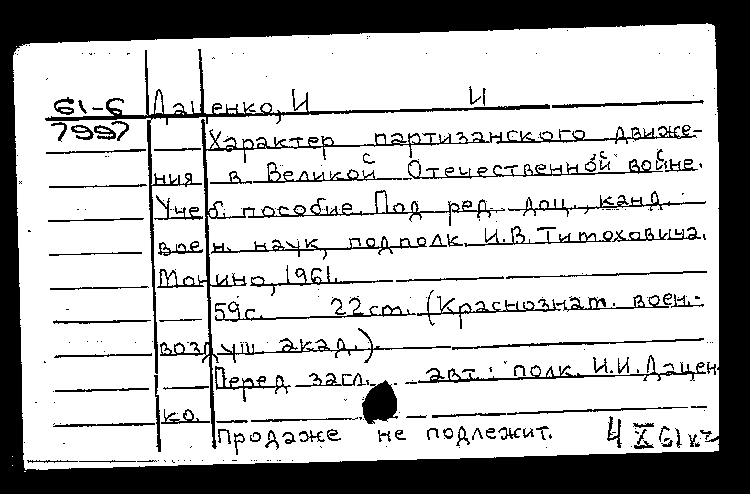 61-6 Даценко, И И
7997 Характер партизанского движе-
ния в Великой Отечественной войне.
Учеб. пособие. Под ред. доц., канд.
воен. наук, подполк. И.В. Титоховича.
Монино, 1961.
59с. 22 cm. (Краснознат. воен.-
воздуш. акад.).
Перед загл. авт.: полк. И.И. Дацен-
ко.
Продаже не подлежит. 4 X 61